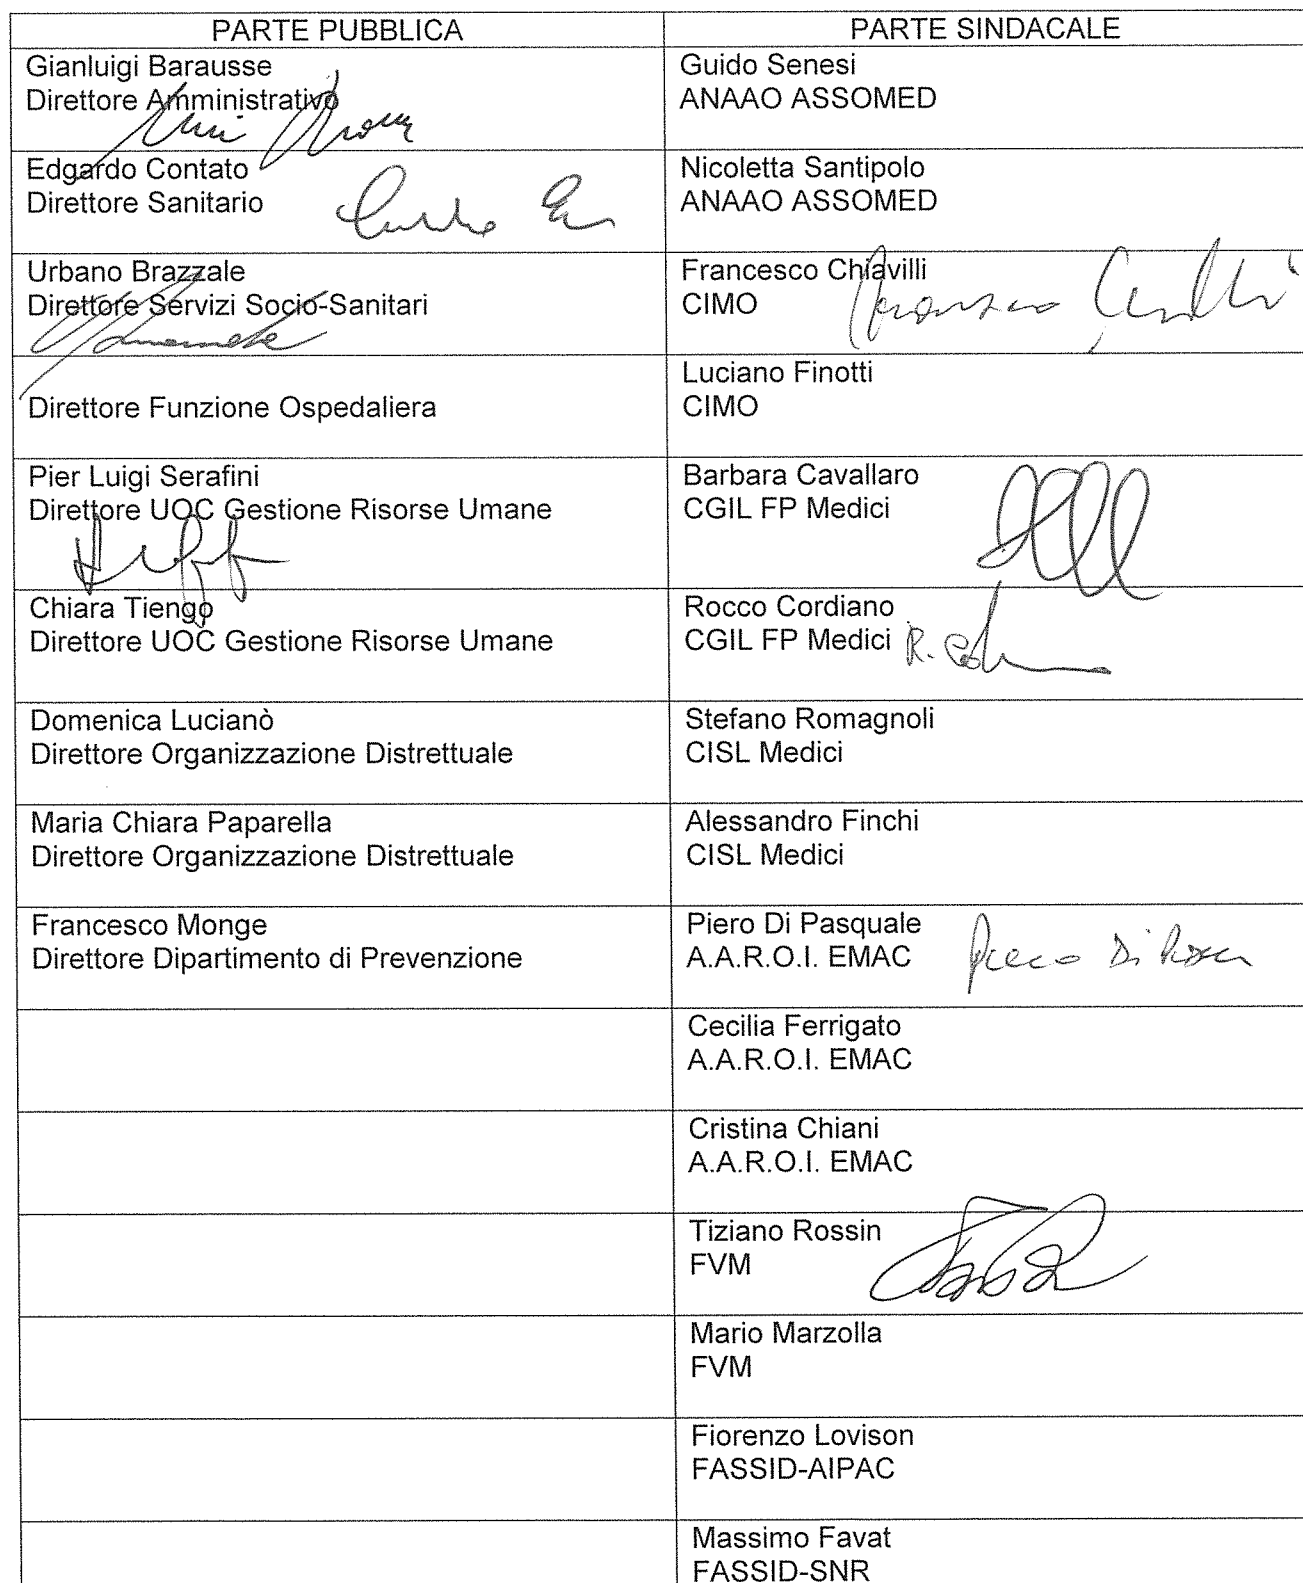 PARTE PUBBLICA
PARTE SINDACALE
Gianluigi Barausse
Direttore Amministrativo
Guido Senesi
ANAAO ASSOMED
Edgardo Contato
Direttore Sanitario
Nicoletta Santipolo
ANAAO ASSOMED
Urbano Brazzale
Direttore Servizi Socio-Sanitari
Francesco Chiavilli
CIMO
Direttore Funzione Ospedaliera
Luciano Finotti
CIMO
Pier Luigi Serafini
Direttore UOC Gestione Risorse Umane
Barbara Cavallaro
CGIL FP Medici
Chiara Tiengo
Direttore UOC Gestione Risorse Umane
Rocco Cordiano
CGIL FP Medici
Domenica Lucianò
Direttore Organizzazione Distrettuale
Stefano Romagnoli
CISL Medici
Maria Chiara Paparella
Direttore Organizzazione Distrettuale
Alessandro Finchi
CISL Medici
Francesco Monge
Direttore Dipartimento di Prevenzione
Piero Di Pasquale
A.A.R.O.I. EMAC
Cecilia Ferrigato
A.A.R.O.I. EMAC
Cristina Chiani
A.A.R.O.I. EMAC
Tiziano Rossin
FVM
Mario Marzolla
FVM
Fiorenzo Lovison
FASSID-AIPAC
Massimo Favat
FASSID-SNR